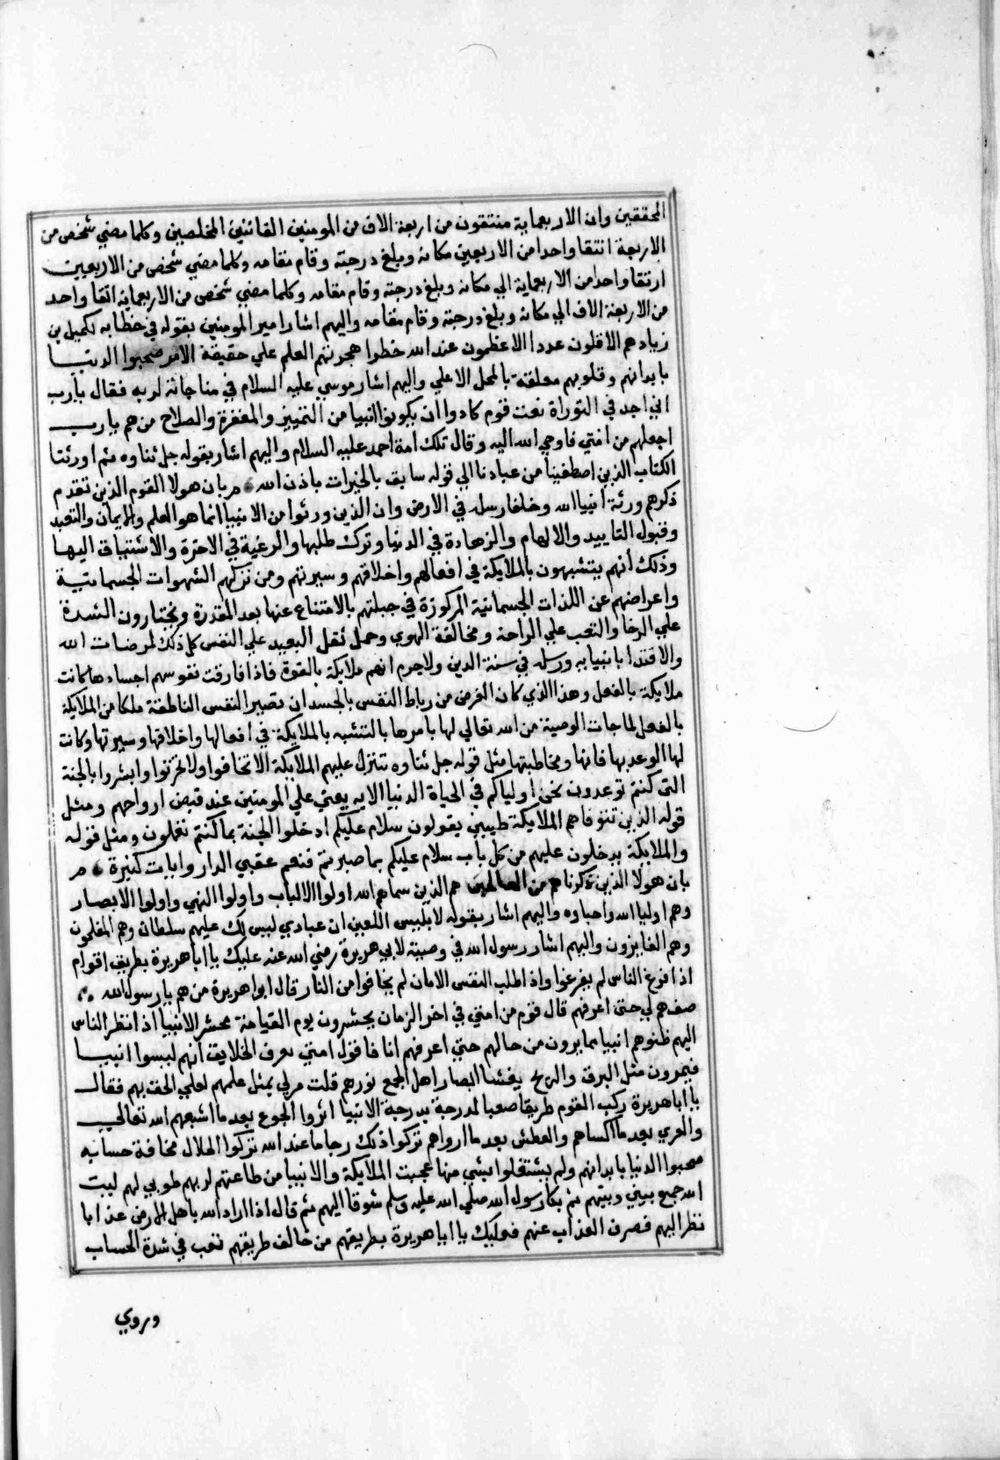 المحققين وان الاربعماية منتقون من اربعة الاف من المومنين القانتين المخلصين وكلما مضي شخص من
الاربعة انتقا واحدا من الاربعين مكانه وبلغ درجته وقام مقامه وكلما مضي شخص من الاربعين
ارتقا واحدا من الاربعماية الي مكانه وبلغ درجته وقام مقامه وكلما مضي شخص من الاربعماية اتقا واحد
من الاربعة الاف الي مكانه وبلغ درجته وقام مقامه واليهم اشار امير المومنين بقوله في خطابه لكميل بن
زياد هم الاقلون عددا الاعظمون عند الله خطوا هجم بهم العلم علي حقيقة الامر صحبوا الدنيا
بابدانهم وقلوبهم معلقة بالمحل الاعلي واليهم اشار موسي عليه السلام في مناجاته لربه فقال يارب
اني اجد في التوراة نعت قوم كادوا ان يكونوا انبيا من التمييز والمغفرة والصلاح من هم يارب
اجعلهم من امتي فاوحي الله اليه وقال تلك امة احمد عليه السلام واليهم اشار بقوله جل ثناوه ثم اورثنا
الكتاب الذين اصطفينا من عبادنا الي قوله سابق بالخيرات باذن الله بان هولا القوم الذين تقدم
ذكرهم ورثة انبيا الله وخلفا رسله في الارض وان الذين ورثوا من الانبيا انما هو العلم والايمان والتعبد
وقبول التاييد والالهام والزهادة في الدنيا وترك طلبها والرغبة في الاخرة والاشتياق اليها
وذلك انهم يتشبهون بالملايكة في افعالهم واخلاقهم وسيرتهم ومن تركهم الشهوات الجسمانية
واعراضهم عن اللذات الجسمانية المركوزة في جبلتهم بالامتناع عنها بعد المقدرة ويختارون الشدة
علي الرخا والتعب علي الراحة ومخالفة الهوي وحمل ثقل البعيد علي النفس كل ذلك لمرضات الله
والاقتدا بانبيايه ورسله في سنة الدين ولاجرم انهم ملايكة بالقوة فاذا فارقت نفوسهم اجسادها كانت
ملايكة بالفعل وهذا الذي كان الغرض من رباط النفس بالجسد ان تصير النفس الناطقة ملكا من الملايكة
بالفعل لما جات الوصية من الله تعالي لها يامرها بالتشبه بالملايكة في افعالها واخلاقها وسيرتها وكانت
لها الوعد بها فانها ومخاطبتها مثل قوله جل ثناوه تتنزل عليهم الملايكة الا تخافوا ولا تحزنوا وابشروا بالجنة
التي كنتم توعدون نحن اولياكم في الحياة الدنيا الايه يعني علي المومنين عند قبض ارواحهم ومثل
قوله الذين تتوفاهم الملايكة طيبين يقولون سلام عليكم ادخلوا الجنة بما كنتم تعملون ومثل قوله
والملايكة يدخلون عليهم من كل باب سلام عليكم بما صبرتم فنعم عقبي الدار وايات كثيرة
بان هولا الذين ذكرناهم من الصالحين هم الذين سماهم الله اولوا الالباب واولوا النهي واولوا الابصار
وهم اوليا الله واحباوه واليهم اشار بقوله لابليس اللعين ان عبادي ليس لك عليهم سلطان وهم المفلحون
وهم الفايزون واليهم اشار رسول الله في وصيته لابي هريرة رضي الله عنه عليك يا اباهريرة بطريق اقوام
اذا فزع الناس لم يفزعوا واذا طلب النفس الامان لم يخافوا من النار قال ابو هريرة من هم يا رسول الله
صفهم لي حتي اعرفهم قال قوم من امتي في اخر الزمان يحشرون يوم القيامة محشر الانبيا اذا نظر الناس
اليهم ظنوهم انبيا مما يرون من حالهم حتي اعرفهم انا فاقول امتي يعرف الخلايق انهم ليسوا انبيا
فيمرون مثل البرق والريح يغشا ابصار اهل الجمع نورهم قلت مر لي بمثل علمهم لعلي الحق بهم فقال
يا اباهريرة ركب القوم طريقا صعبا لدرجة بدرجة الانبيا اثروا الجوع بعد ما اشبعهم الله تعالي
والعري بعد ما اكساهم والعطش بعد ما ارواهم تركوا ذلك رجا ما عند الله تركوا الحلال مخافة حسابه
صحبوا الدنيا بابدانهم ولم يشتغلوا بشي منها عجبت الملايكة والانبيا من طاعتهم لربهم طوبي لهم ليت
الله جمع بيني وبينهم ثم بكا رسول الله صلي الله عليه وسلم شوقا اليهم ثم قال اذا اراد الله باهل الارض عذابا
نظر اليهم فصرف العذاب عنهم فعليك يا اباهريرة بطريقهم من خالف طريقهم تعب في شدة الحساب
وروي